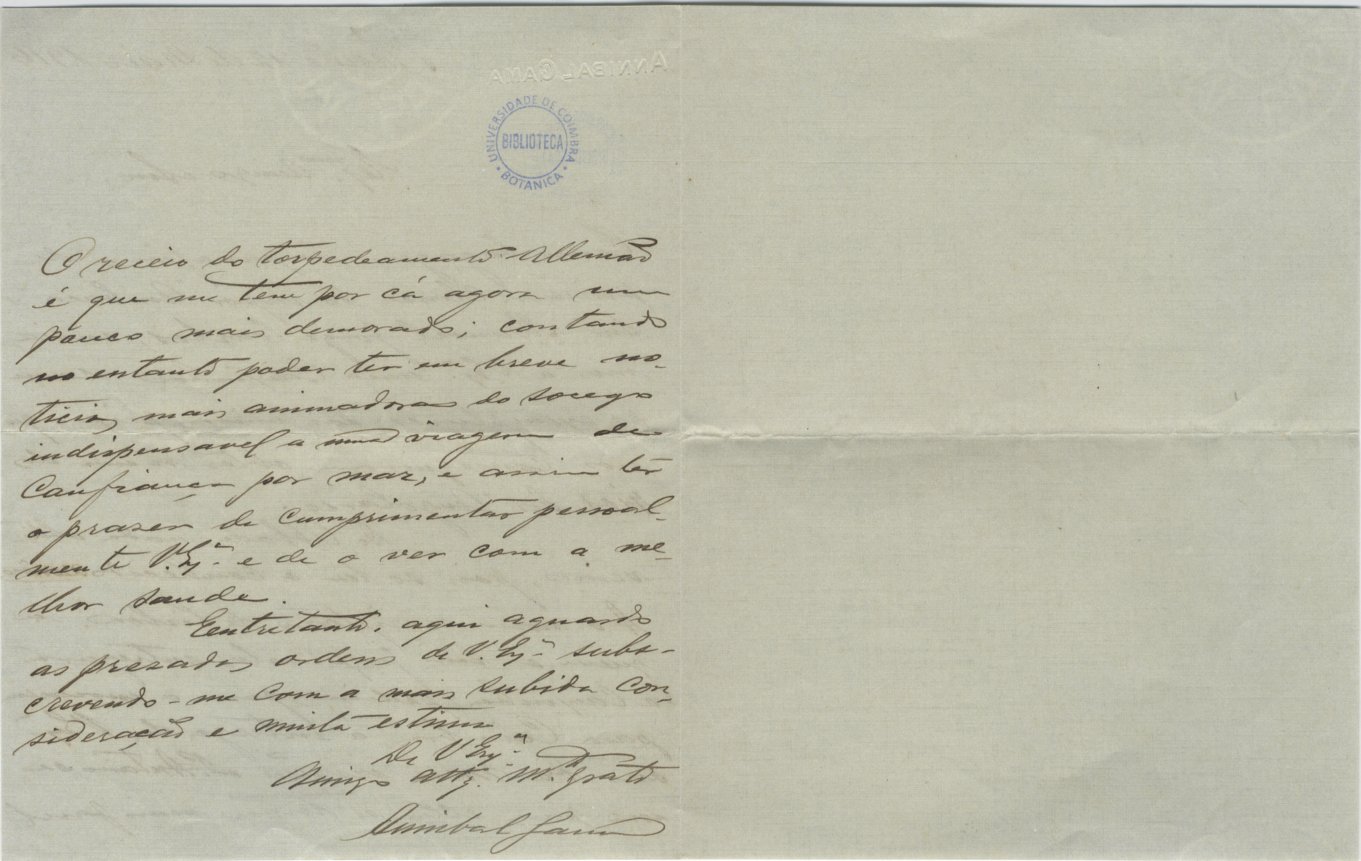 ANNIBAL GAMA
UNIVERSIDADE DE COIMBRA
BIBLIOTECA
BOTANICA
O receio do torpedeamento Allemão
é que me tem por cá agora um
pouco mais demorado; contando
no entanto poder ter em breve no-
ticias mais animadoras do socego
indispensavel a uma viagem de
confiança por mar, e assim ter
o prazer de cumprimentar pessoal-
mente V. Exª. e de o ver com a me-
lhor saude.
Entretanto, aqui aguardo
as prezadas ordens de V. Exª. subs-
crevendo-me com a mais subida con-
sideração e muita estima
De V. Exª.
Amigo attº. mtº. grato
Annibal Gama